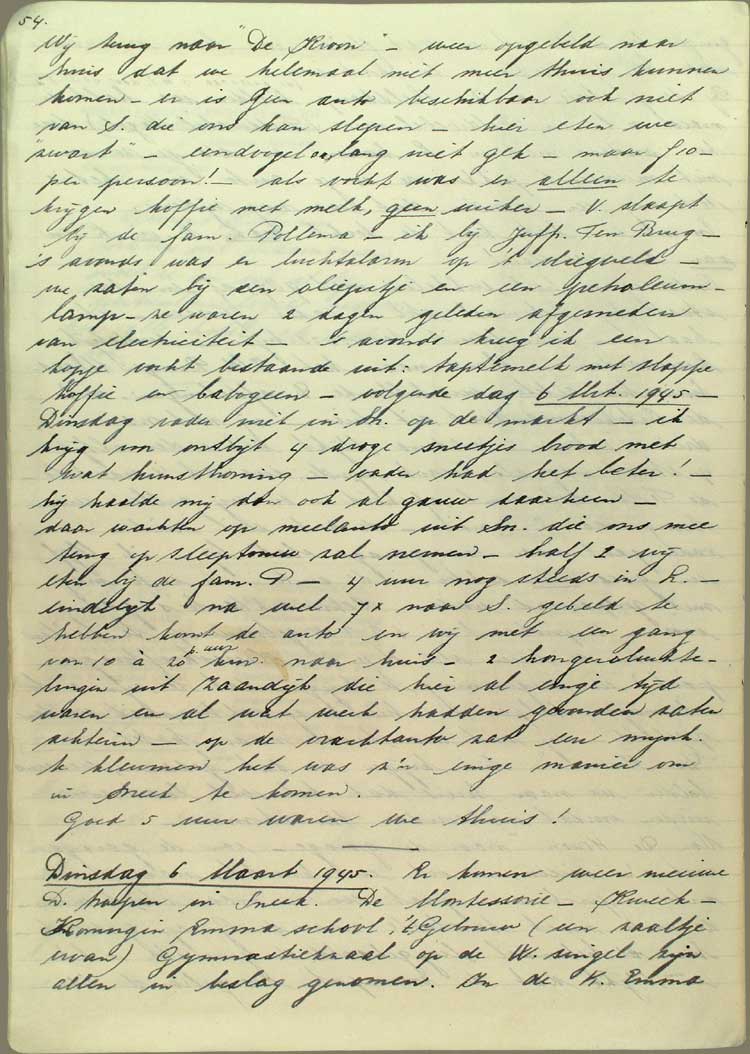 54.
Wij terug naar "De Kroon" – weer opgebeld naar
huis dat we helemaal niet meer thuis kunnen
komen – er is geen auto beschikbaar ook niet
van S. die ons kan slepen – hier eten we
"zwart" – eendvogel lang niet gek – maar f 10-
per persoon! – als vocht was er alleen te
krijgen koffie met melk, geen suiker – V. slaapt
bij de fam. Pollema – ik bij Juffr. Ten Brug –
's avonds was er luchtalarm op 't vliegveld –
we zaten bij een oliepitje en een petroleum-
lamp – ze waren 2 dagen geleden afgesneden
van electriciteit – 's avonds kreeg ik een
kopje vocht bestaande uit: taptemelk met slappe
koffie en batogeen – volgende dag 6 Mrt. 1945 –
Dinsdag vader niet in Sn. op de markt – ik
krijg voor ontbijt 4 droge sneetjes brood met
wat kunsthoning – vader had het beter! –
hij haalde mij dan ook al gauw daarheen –
daar wachten op meelauto uit Sn. die ons mee
terug op sleeptouw zal nemen – half 2 wij
eten bij de fam. P – 4 uur nog steeds in L. –
eindelijk na wel 7x naar S. gebeld te
hebben komt de auto en wij met een gang
van 10 à 20 km. p. uur naar huis – 2 hongervluchte-
lingen uit Zaandijk die hier al enige tijd
waren en al wat werk hadden gevonden zaten
achterin – op de vrachtauto zat een mijnh.
te kleumen het was z'n enige manier om
in Sneek te komen.
Goed 5 uur waren we thuis!
Dinsdag 6 Maart 1945. Er komen weer nieuwe
D. troepen in Sneek. De Montessorie – Kweek –
Koningin Emma school, 't Gebouw (een zaaltje
ervan) Gymnastiekzaal op de W. singel zijn
allen in beslag genomen. In de K. Emma